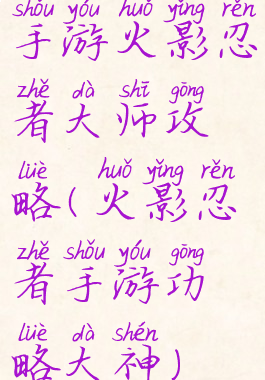 shǒu yóu huǒ yǐng rěn
手游火影忍
zhě dà shī gōng
者大师攻
lüè huǒ yǐng rěn
略(火影忍
zhě shǒu yóu gōng
者手游功
lüè dà shén
略大神)